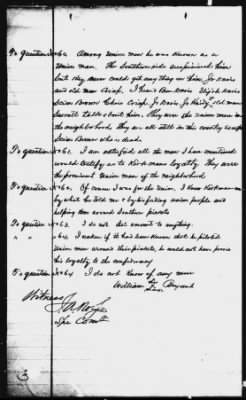 To question No 60 Among Union men he was known as a
Union man. The Southern side suspicioned him
but they never could get any thing on him. Jo Davis
and old man Crisp. I heard Ben Davis Elijah Davis
Brown Chris Crisp, Jo Davis, Jo old man
talk about him. They were the Union men in
the neighborhood. They are all still in this county except
Brown who is dead.
To question No 61. I am satisfied all the men I have mentioned
would testify as to Kirkmans loyalty. They were
the prominent Union men of the neighborhood
To question No 62. Of course I was for the Union. I knew Kirkman
by what he told me & by his feeding Union people and
helping them around Southern pickets
To question No 63. I do not know of anything.
" " 64. I reckon if it had been known that he piloted
Union men around their pickets, he could not have proven
his loyalty to the confederacy
To question No 64 I do not know of any more
William Bryant
Witness
Spe Comr